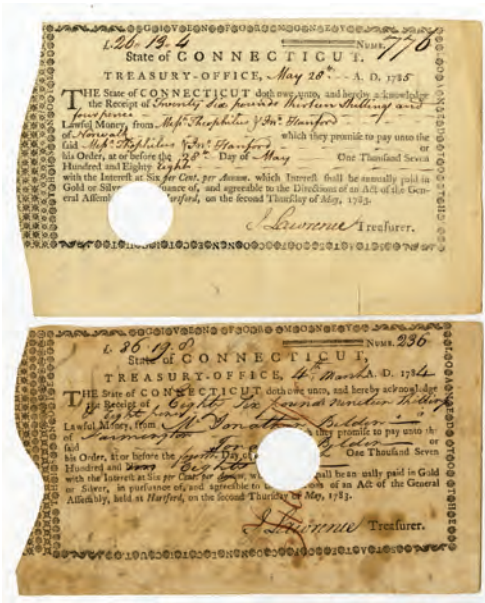 L 26 · 13 · 4 NUMB. 776
State of CONNECTICUT.
TREASURY-OFFICE, May 28th A. D. 1785
THE State of CONNECTICUT doth owe unto, and hereby acknowledge
the Receipt of Twenty Six pounds thirteen Shillings and
four pence
Lawful Money, from Messrs Theophilus & Jno. Hanford
of Norwalk which they promise to pay unto the
said Messrs Theophilus & Jno. Hanford or
his Order, at or before the 28th Day of May One Thousand Seven
Hundred and Eighty Eight
with the Interest at Six per Cent. per Annum. which Interest shall be annually paid in
Gold or Silver uance of, and agreeable to the Directions of an Act of the Gen-
eral Assemb Hartford, on the second Thursday of May, 1783.
J Lawrence Treasurer.
L 86 · 19 · 8 NUMB. 236
State of CONNECTICUT,
TREASURY-OFFICE, 4th March A. D. 1784
THE State of CONNECTICUT doth owe unto, and hereby acknowledge
the Receipt of Eighty Six pounds nineteen Shillings
Eight pence
Lawful Money, from Mr Jonathan Belden
of Farmington they promise to pay unto the
said or
his Order, at or before the Fourth Day of One Thousand Seven
Hundred and Eighty
with the Interest at Six per Cent. per Annum, all be an ually paid in Gold
or Silver, in pursuance of, and agreeable to of an Act of the General
Assembly, held at Hartford, on the second Thursday of May, 1783.
J Lawrence Treasurer.